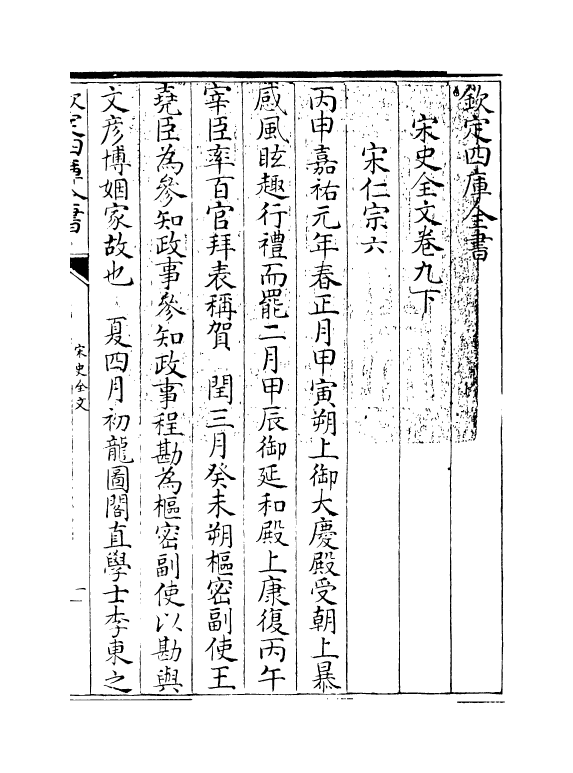 欽定四庫全書
宋史全文卷九下
宋仁宗六
丙申嘉祐元年春正月甲寅朔上御大慶殿受朝上暴
感風眩趣行禮而罷二月甲辰御延和殿上康復丙午
宰臣率百官拜表稱賀 閏三月癸未朔樞密副使王
堯臣為參知政事參知政事程勘為樞密副使以勘與
文彦博姻家故也 夏四月初龍圖閣直學士李東之
欽定四庫全書
宋史全文
一